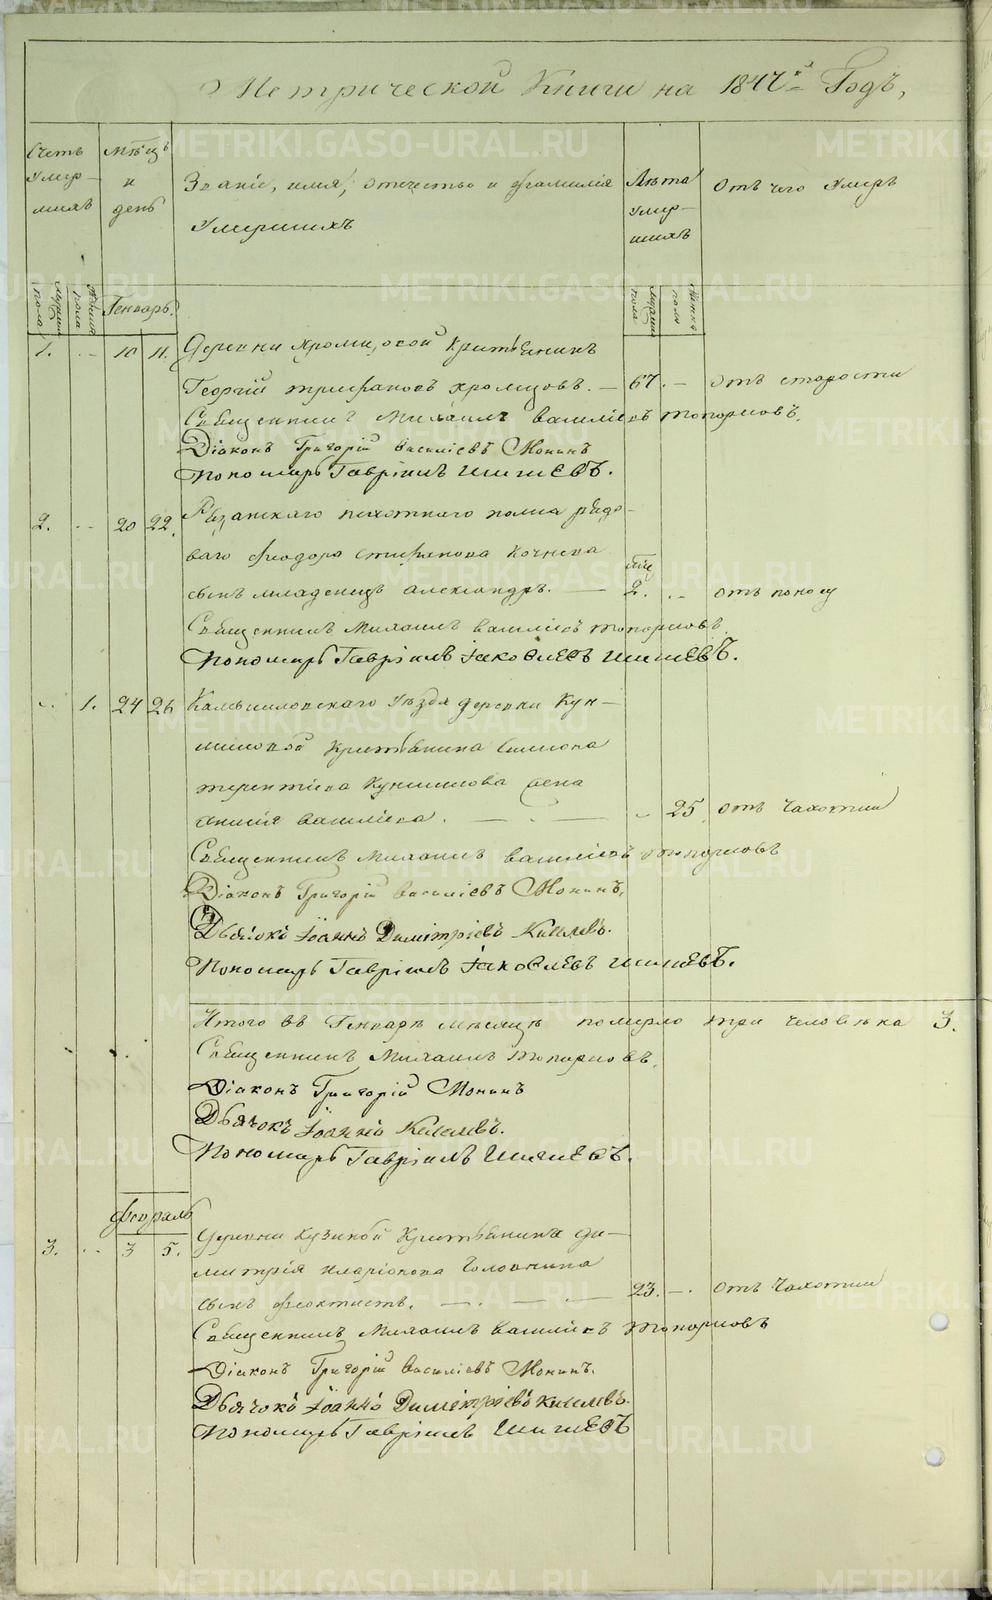 Метрической Книги на 1847й Годъ,
Счетъ умер-шихъ
Мѣсцъ и день
Званіе, имя, отечество и фамилія
Умершихъ
Лѣта умер-шихъ
Отъ чего умеръ
мужеска пола
женска пола
Генварь.
мужеска пола
женска пола
1. 10 11. Деревни Хромцовой Крестьянинъ
Георгій Трифановъ Хромцовъ. — 67. — отъ старости
Священникъ Михаилъ Васильевъ Топорковъ.
Діаконъ Григорій Василіевъ Монинъ
Пономарь Гавріилъ Шишевъ.
2. 20 22. пехотнаго полка рядо-
ваго Феодора Стефанова
сынъ младенецъ Александръ. — 2. отъ поносу
Священникъ Михаилъ Васильевъ Топорковъ
Пономарь Гавріилъ Іаковлевъ Шишевъ.
1. 24 26 Камышловскаго Уѣзда деревни Кун-
шиловой Крестьянина Симиона
Терентіева Куншилова жена
Васильева. — 25. отъ Чахотки
Священникъ Михаилъ Васильевъ Топорковъ
Діаконъ Григорій Василіевъ Монинъ.
Дьячокъ Іоаннъ Димітріевъ Киселевъ.
Пономарь Гавріилъ Іаковлевъ Шишевъ.
Итого въ Генварѣ мѣсяцѣ померло три человѣка 3.
Священникъ Михаилъ Топорковъ.
Діаконъ Григорій Монинъ
Дьячокъ Іоаннъ Киселевъ.
Пономарь Гавріилъ Шишевъ.
Февраль
3. 3 5. Деревни Кузиной Крестьянина Ди-
митрія Иларіонова Головкина
сынъ Феоктистъ. — 23. — отъ Чахотки
Священникъ Михаилъ Васильевъ Топорковъ
Діаконъ Григорій Василіевъ Монинъ.
Дьячокъ Іоаннъ Димітріевъ Киселевъ.
Пономарь Гавріилъ Шишевъ
METRIKI.GASO-URAL.RU